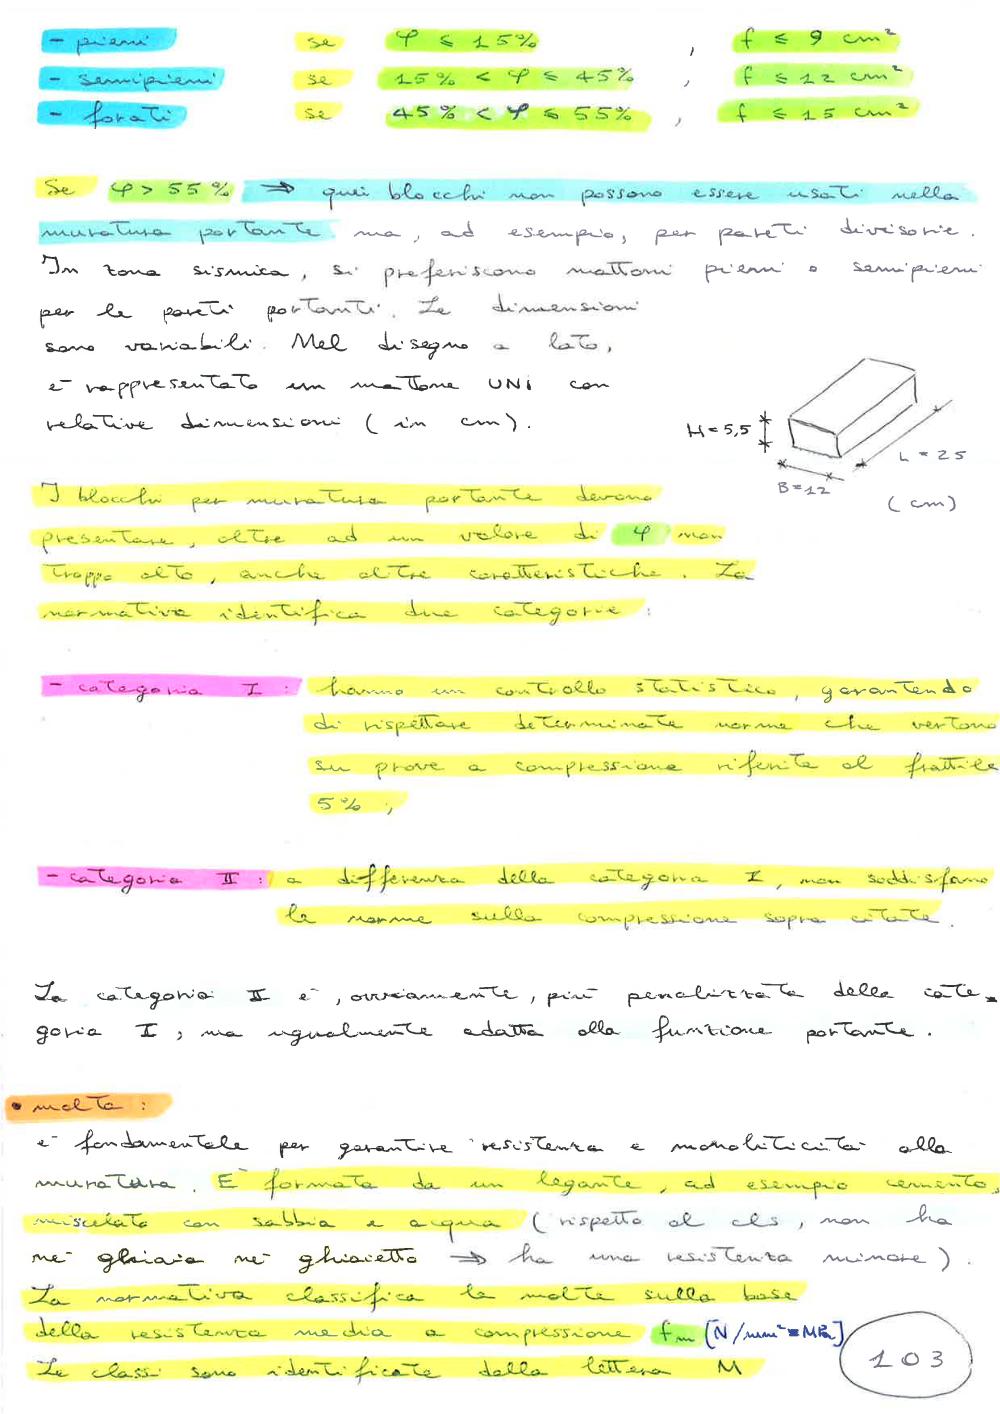 - pieni se φ ≤ 15% , f ≤ 9 cm²
- semipieni se 15% < φ ≤ 45% , f ≤ 12 cm²
- forati se 45% < φ ≤ 55% , f ≤ 15 cm²
Se φ > 55% ⇒ quei blocchi non possono essere usati nella
muratura portante ma, ad esempio, per pareti divisorie.
In zona sismica, si preferiscono mattoni pieni o semipieni
per le pareti portanti. Le dimensioni
sono variabili. Nel disegno a lato,
è rappresentato un mattone UNI con
relative dimensioni (in cm).
H = 5,5
L = 25
B = 12
(cm)
I blocchi per muratura portante devono
presentare, oltre ad un valore di φ non
troppo alto, anche altre caratteristiche. La
normativa identifica due categorie:
- categoria I : hanno un controllo statistico, garantendo
di rispettare determinate norme che vertono
su prove a compressione riferite al frattile
5% ;
- categoria II : a differenza della categoria I, non soddisfano
le norme sulla compressione sopra citate.
La categoria II è, ovviamente, più penalizzata della cate-
goria I, ma ugualmente adatta alla funzione portante.
• malta :
è fondamentale per garantire resistenza e monoliticità alla
muratura. È formata da un legante, ad esempio cemento,
miscelato con sabbia e acqua (rispetto al cls, non ha
nè ghiaia nè ghiaietto ⇒ ha una resistenza minore).
La normativa classifica le malte sulla base
della resistenza media a compressione fm [N/mm² = MPa]
Le classi sono identificate dalla lettera M
103